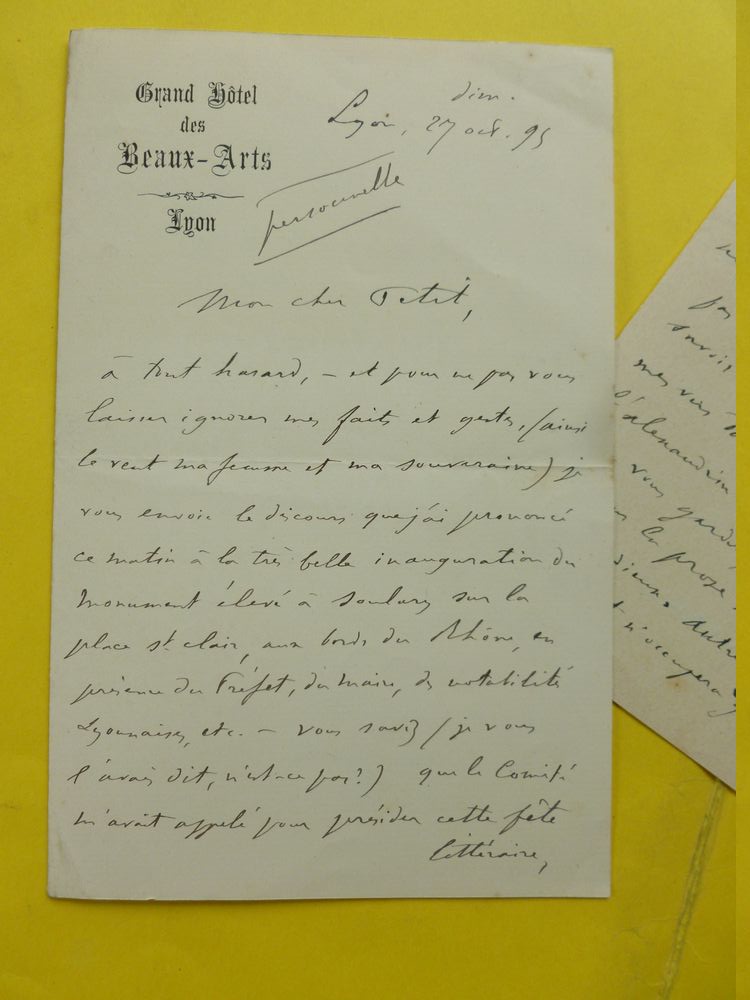 Grand Hôtel
des
Beaux-Arts
Lyon
dim.
Lyon, 27 oct. 95
personnelle
Mon cher Petit,
à tout hasard, – et pour ne pas vous
laisser ignorer mes faits et gestes, (ainsi
le veut ma femme et ma souveraine) je
vous envoie le discours que j'ai prononcé
ce matin à la très belle inauguration du
monument élevé à Soulary sur la
place St Clair, aux bords du Rhône, en
présence du Préfet, du maire, des notabilités
Lyonnaises, etc. – Vous savez (je vous
l'avais dit, n'est-ce pas?) que le Comité
m'avait appelé pour présider cette fête
littéraire,
pas
savoir
mes vers
l'alexandrin
vous garde
la prose
dieux. Autre
n'occupera